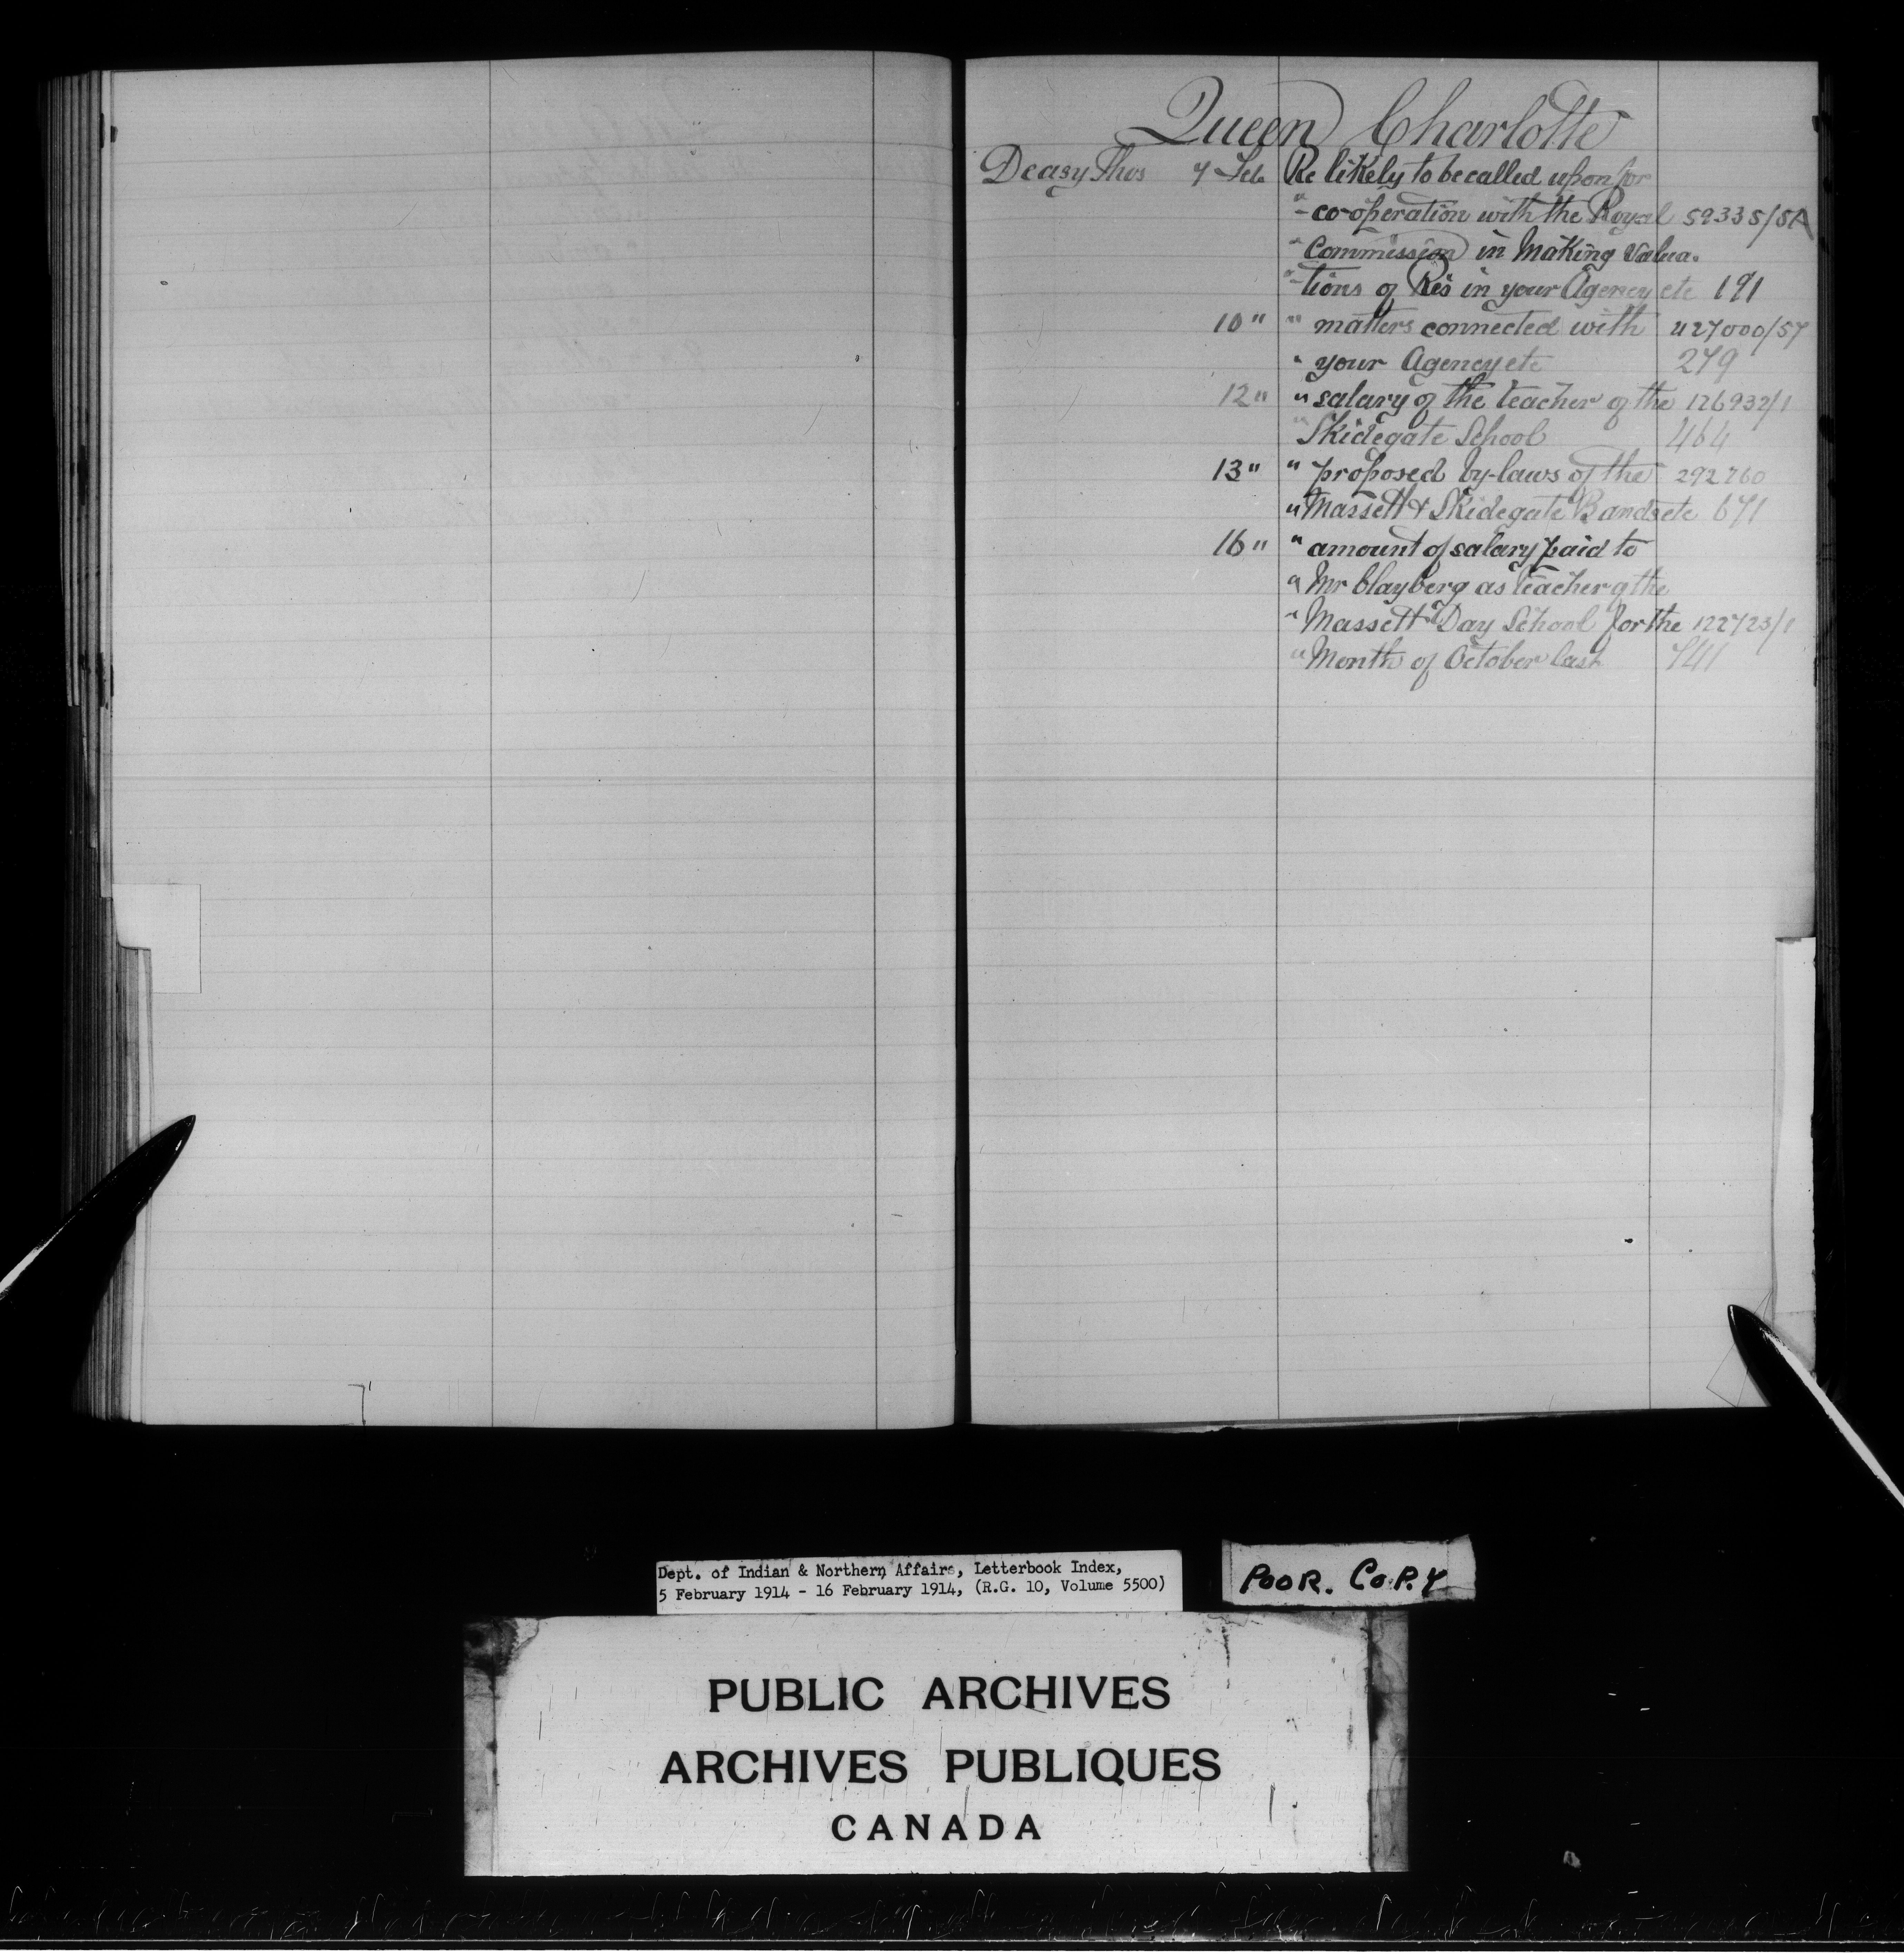 Queen Charlotte
Deasy Thos 7 Feb Re likely to be called upon for
" co-operation with the Royal 59335/5A
" Commission in Making Valua-
" tions of Res in your Agency etc 191
10 " " matters connected with 427000/57
" your Agency etc 279
12 " " salary of the teacher of the 126932/1
" Skidegate School 464
13 " " proposed by-laws of the 292760
" Massett & Skidegate Bands etc 671
16 " " amount of salary paid to
" Mr Clayberg as teacher of the
" Massett Day School for the 122723/1
" Month of October last 741
Dept. of Indian & Northern Affairs, Letterbook Index,
5 February 1914 - 16 February 1914, (R.G. 10, Volume 5500)
POOR. COPY
PUBLIC ARCHIVES
ARCHIVES PUBLIQUES
CANADA